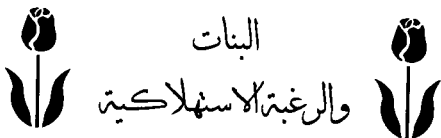 البنات
والرغبة الاستهلاكية